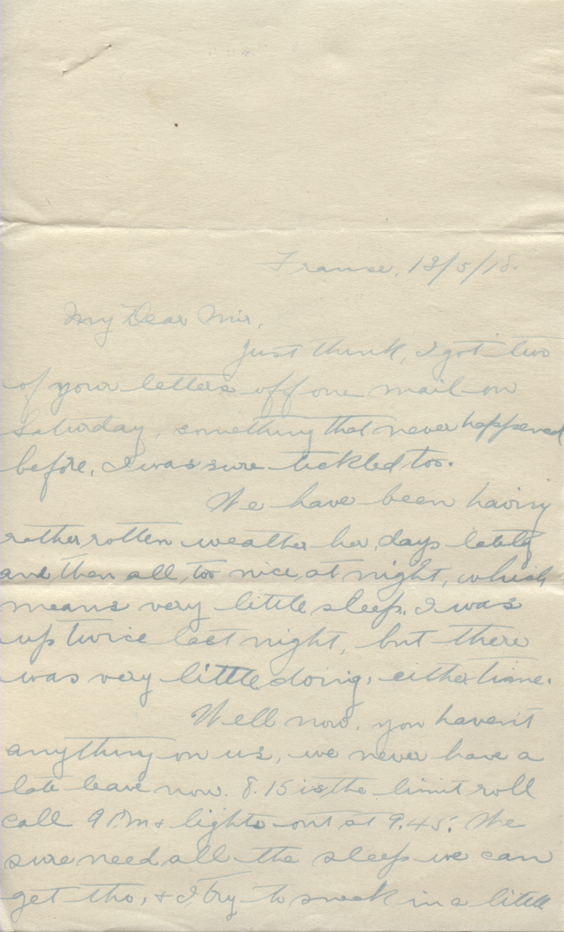 France, 13/5/18.
My Dear Mir,
Just think, I got two
of your letters off one mail on
Saturday, something that never happened
before, I was sure tickled too.
We have been having
rather rotten weather her, days lately
and then all too nice at night, which
means very little sleep. I was
up twice last night, but there
was very little doing, either time.
Well now, you haven't
anything on us, we never have a
late leave now. 8.15 is the limit roll
call 9 P.M. & lights out at 9.45. We
sure need all the sleep we can
get tho, & I try to sneak in a little